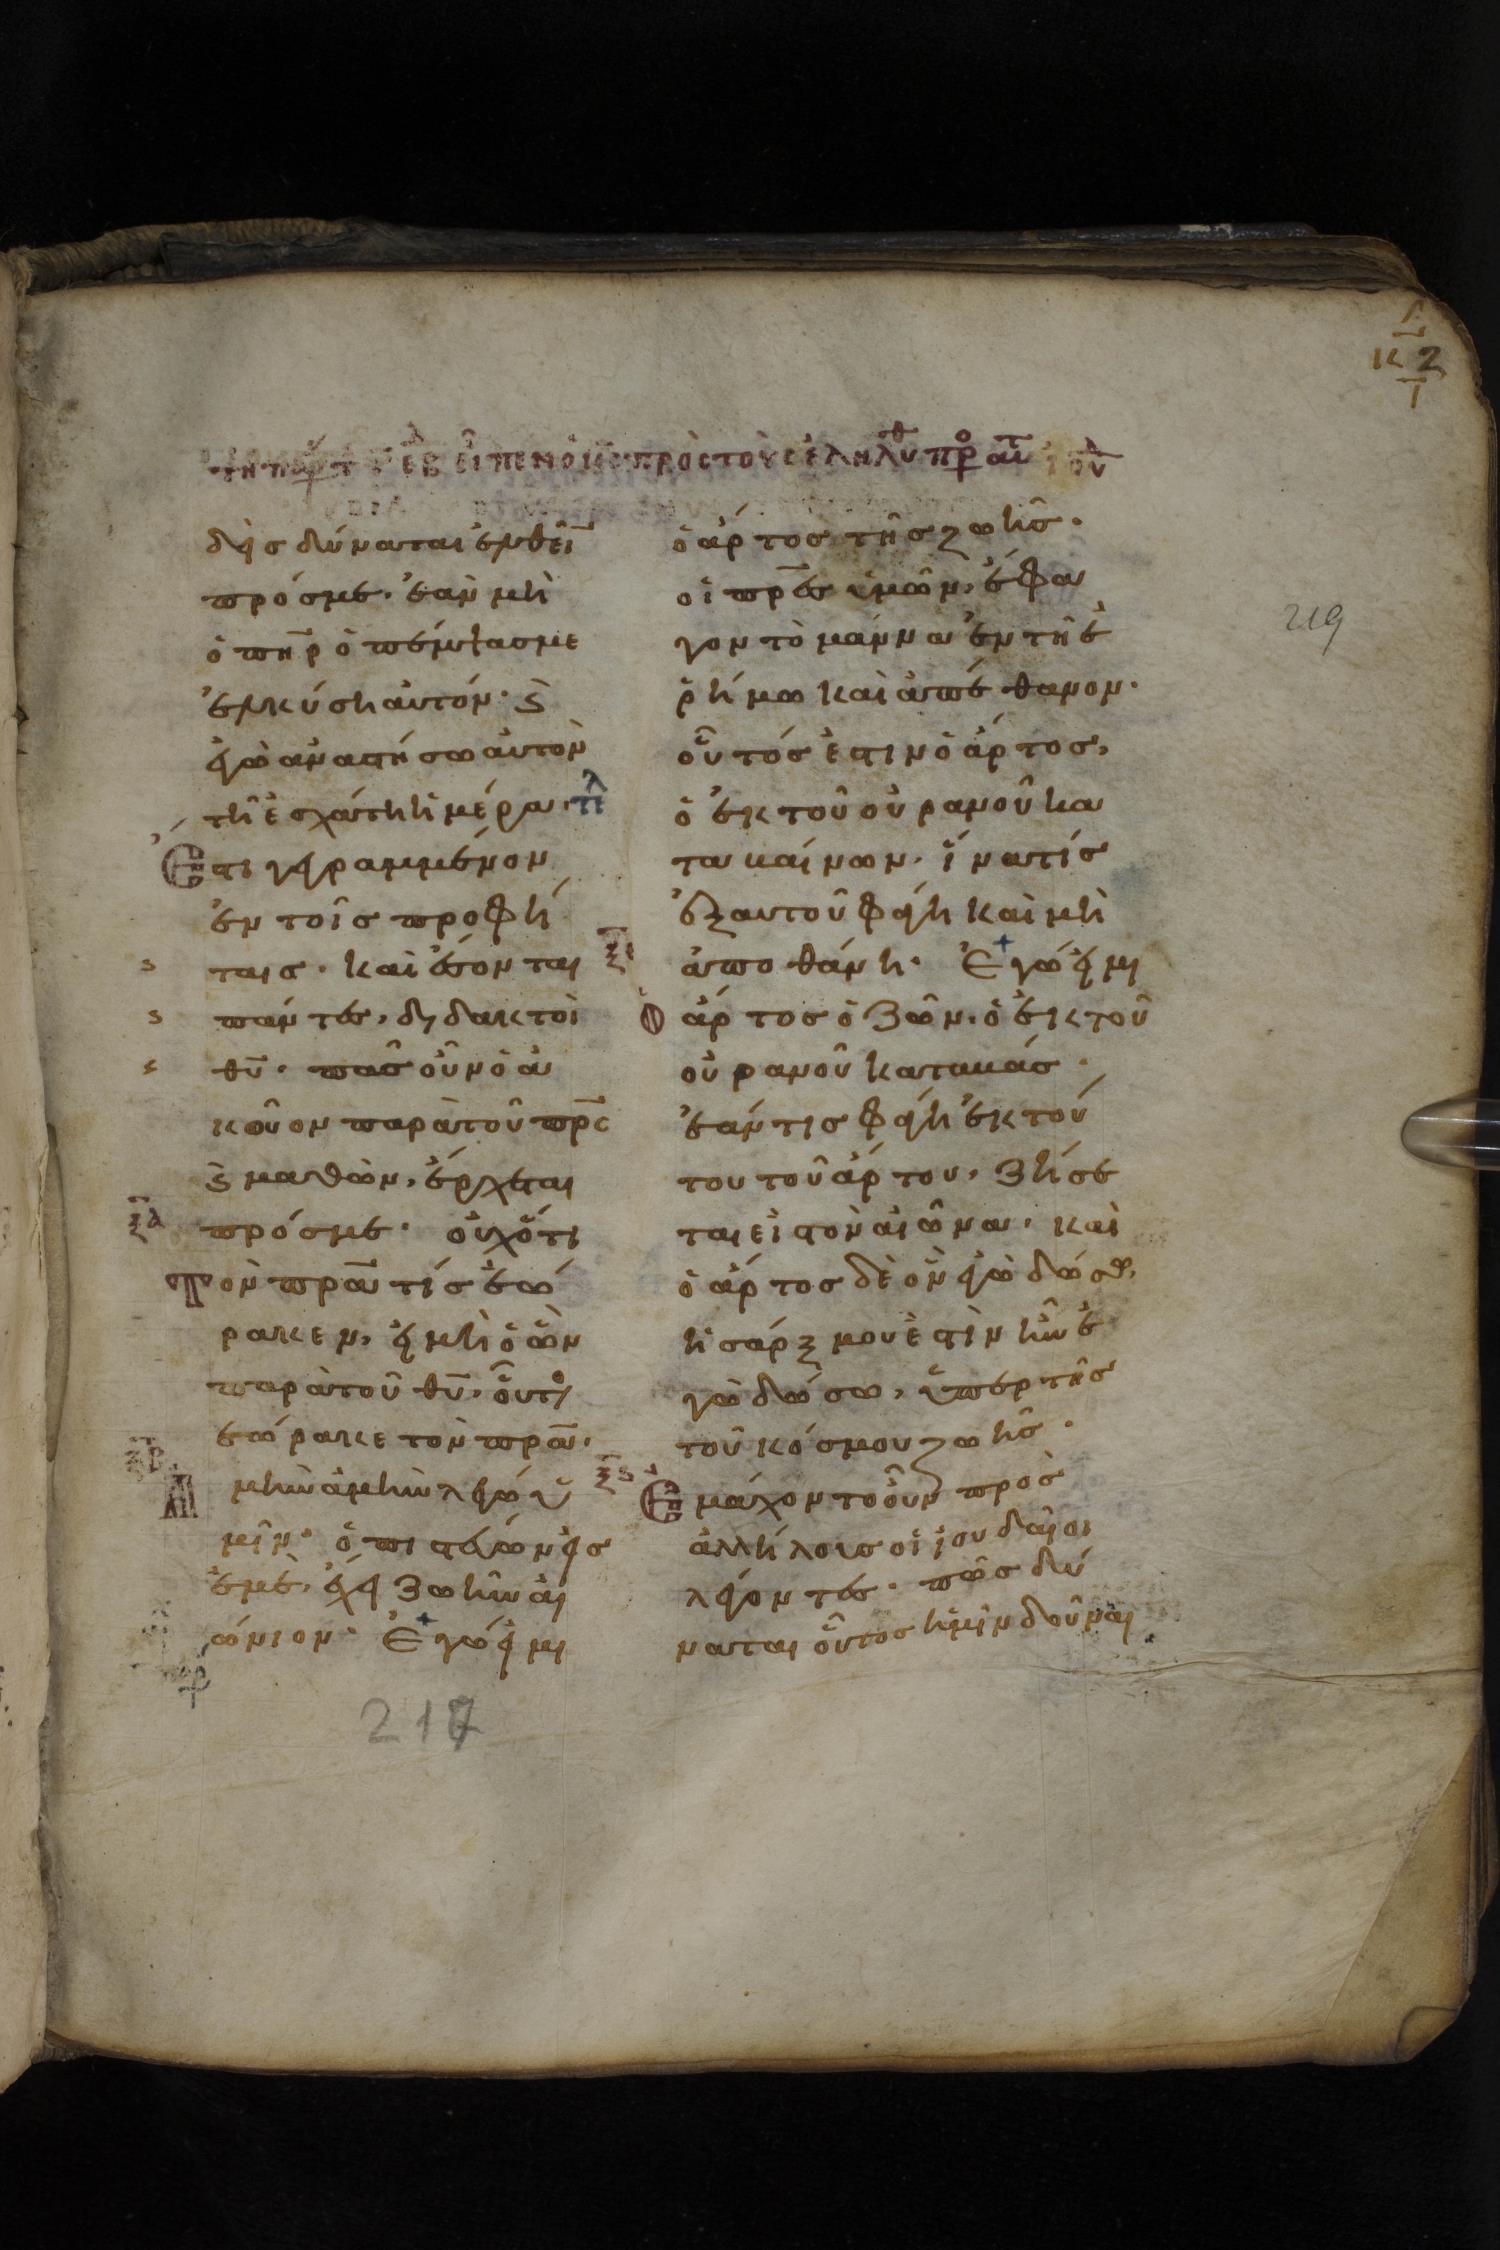 κζ
εἶπεν ὁ ις πρὸς τοὺς ἐληλυθ πρ αυτ ιου
219
δεὶς δύναται ἐλθεῖ
πρός με· ἐὰν μὴ
ὁ πηρ ὁ πέμψας με
ἑλκύση αὐτόν· ϗ
ἐγὼ ἀναστήσω αὐτὸν
τῆ ἐσχάτη ἡμέρα· τελ
Ἔστι γεγραμμένον
ἐν τοῖς προφή
ταις· καὶ ἔσονται
πάντες, διδακτοὶ
θυ· πᾶς οὖν ὁ ἀ
κούον παρὰ τοῦ πρς
ϗ μαθὼν, ἔρχεται
ξα
πρός με· οὐχ ὅτι
Τὸν πρα τίς ἑώ
ρακεν, εἰ μὴ ὁ ὢν
παρὰ τοῦ θυ, οὗτος
ἑώρακε τὸν πρα·
ξβ
Ἀμὴν ἀμὴν λέγω ὑ
μῖν· ὁ πιστεύων εἰς
ἐμὲ, ἔχει ζωὴν αἰ
ώνιον· Ἐγώ εἰμι
ὁ ἄρτος τῆς ζωῆς·
οἱ πρες ὑμῶν, ἔφα
γον τὸ μάννα ἐν τῆ ἐ
ρήμω καὶ ἀπέθανον·
οὗτός ἐστιν ὁ ἄρτος,
ὁ ἐκ τοῦ οὐρανοῦ κα
ταβαίνων, ἵνα τίς
ἐξ αὐτοῦ φάγη καὶ μὴ
ἀποθάνη· Ἐγώ εἰμι
Ὁ ἄρτος ὁ ζῶν, ὁ ἐκ τοῦ
οὐρανοῦ καταβάς·
ἐάν τις φάγη ἐκ τού
του τοῦ ἄρτου, ζήσε
ται εἰς τὸν αἰῶνα, καὶ
ὁ ἄρτος δὲ ὃν ἐγὼ δώσω,
ἡ σάρξ μου ἐστὶν ἣν ἐ
γὼ δώσω, ὑπερ τῆς
τοῦ κόσμου ζωῆς·
ξς
Ἐμάχοντο οὖν πρὸς
ἀλλήλους οἱ ἰουδαῖοι
λέγοντες· πῶς δύ
ναται οὗτος ἡμῖν δοῦναι
217